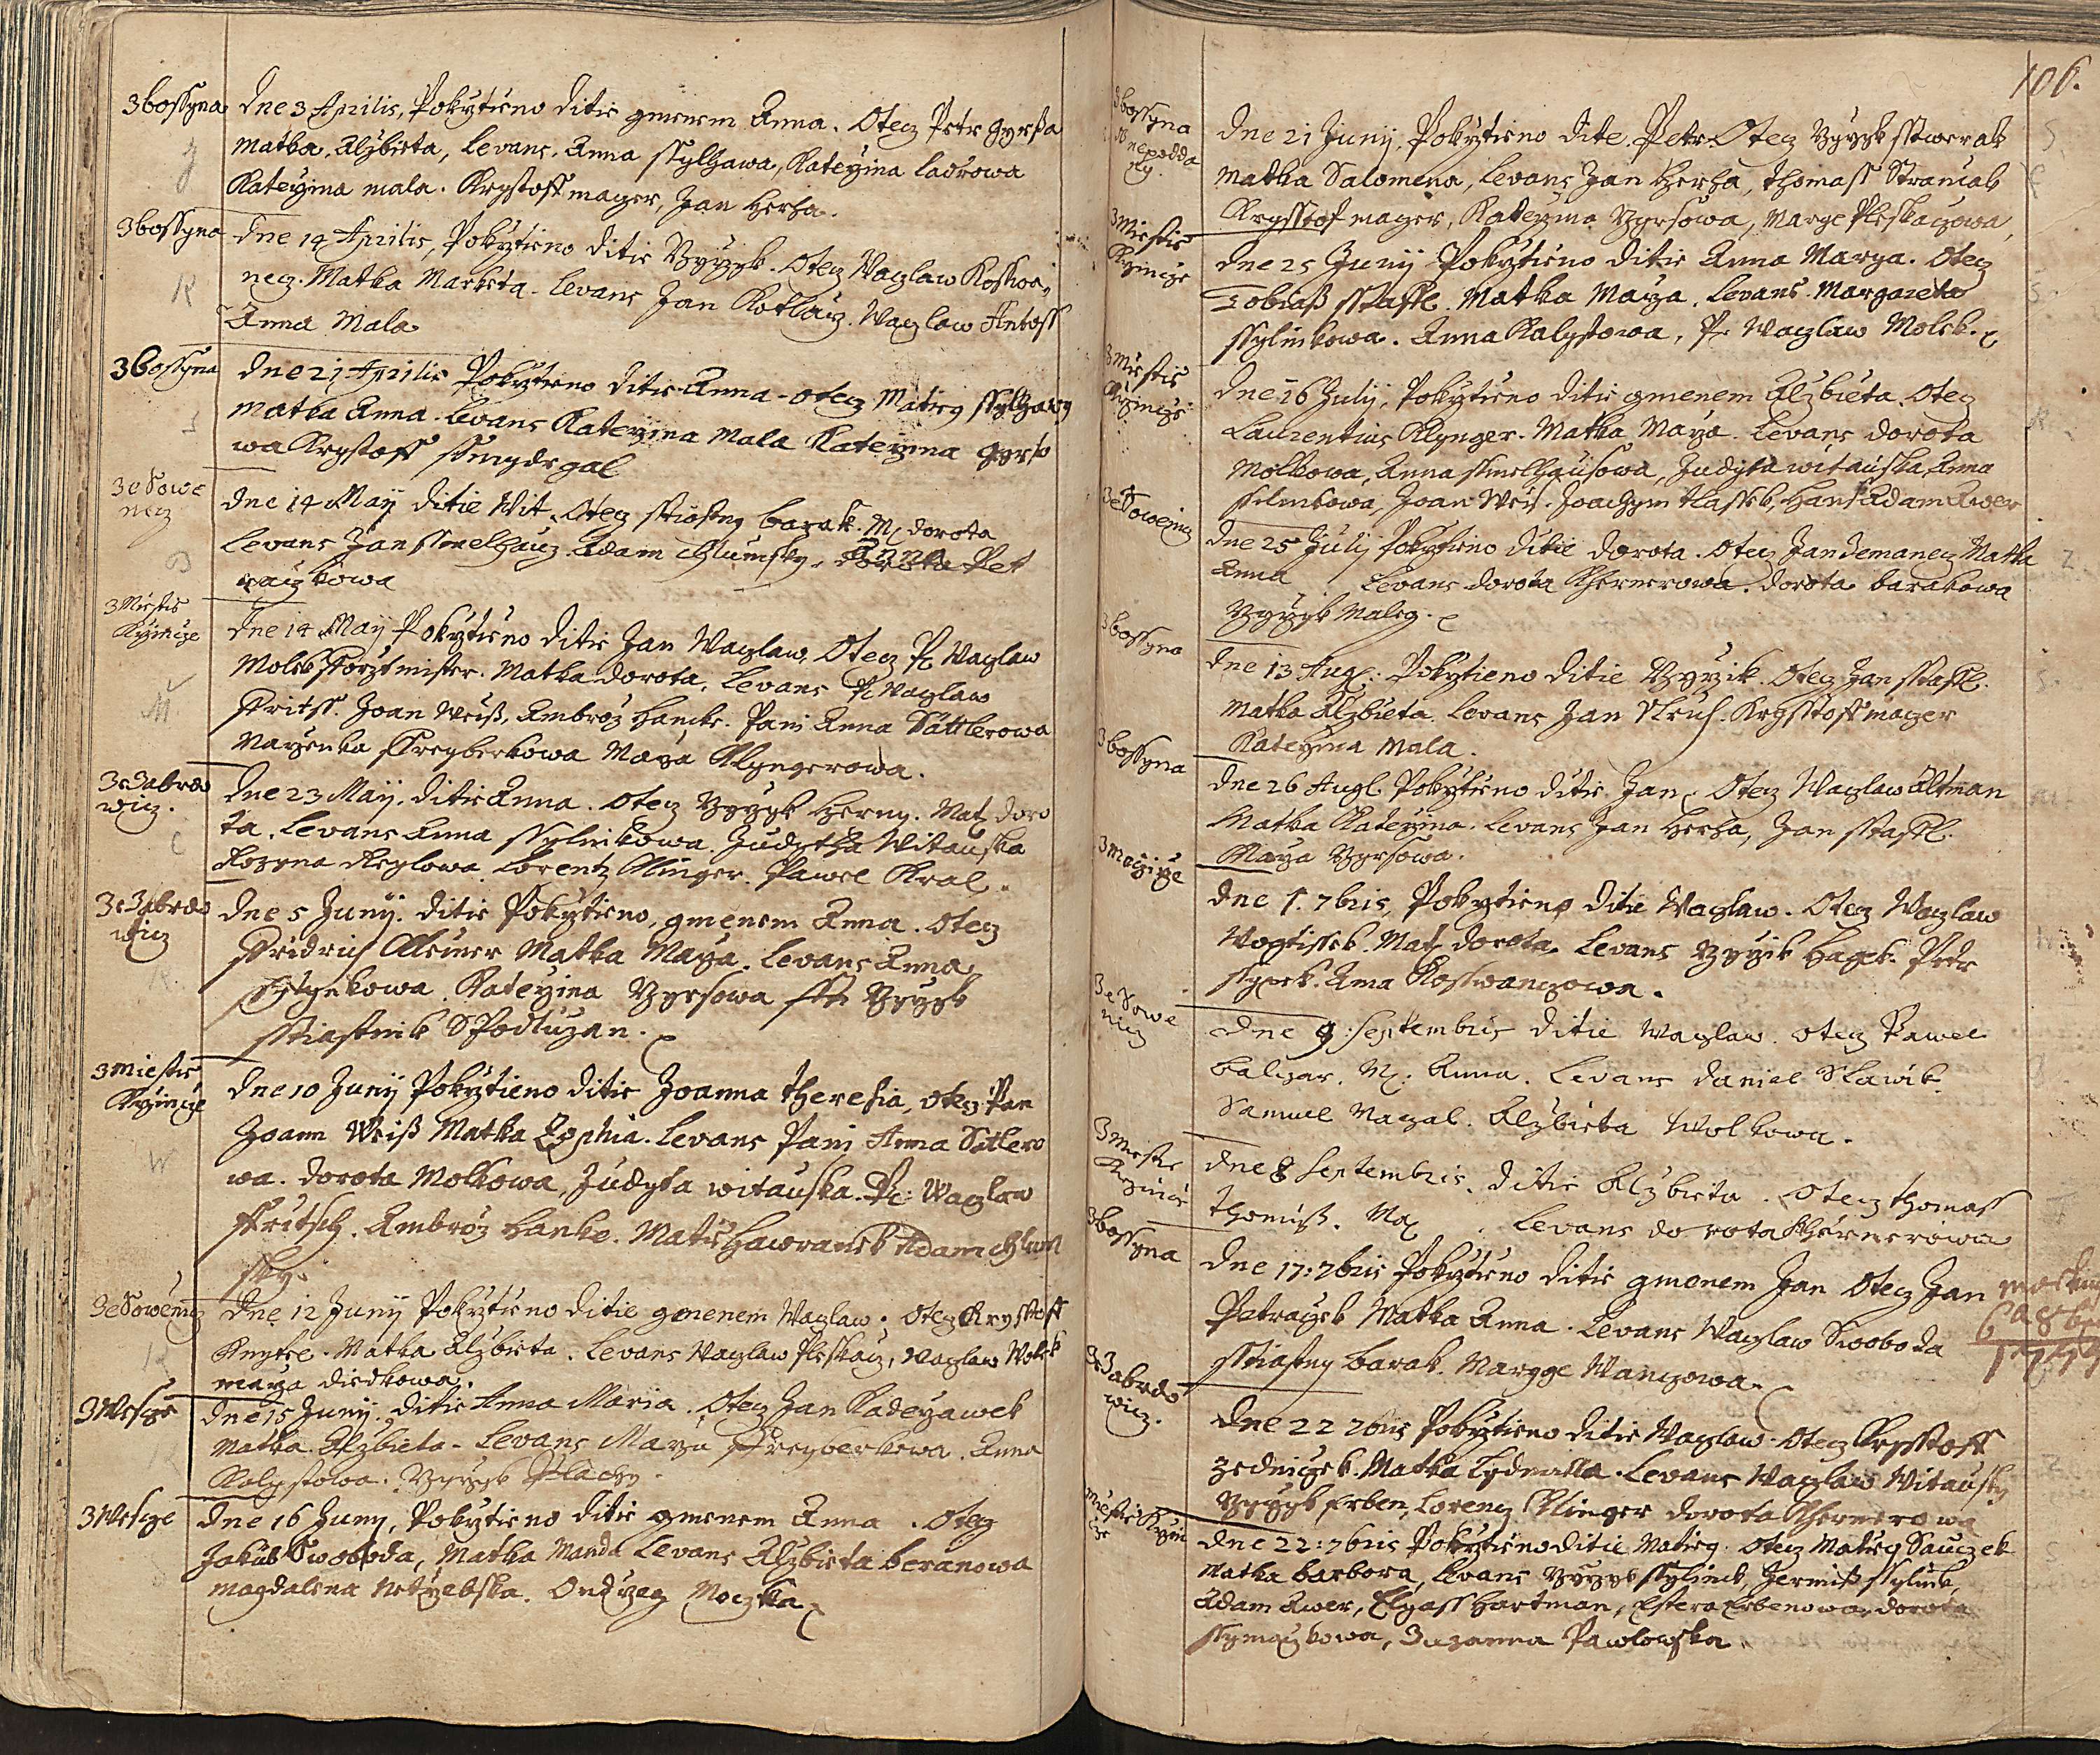 3 bossyna
Dne 3 Aprilis, Pokrztieno ditie gmenem Anna. Otecz Petr Gyrsa
Matka Alzbieta, Levans. Anna Sylhawa, Kateržina ladrowa
Kateržina mala. Krystoff mager, Jan Herha.
3 bossyna
Dne 14 Aprilis, Pokrztieno ditie Rzyrzyk. Otecz Waczlaw Kosswa-
necz. Matka Marketa. Levans Jan Kotlarz. Waczlaw Antoss
Anna Mala
3 bossyna
Dne 21 Aprilis Pokrztieno ditie Anna. Otecz Matieg Sylhawy
Matka Anna. Levans Kateržina Mala Kateržina Gyrso
wa Krystoff
3e Sowe
necz
Dne 14 Maÿ ditie Wit. Otecz Stiastny barak. M. dorota
Levans Jan Smelhauz Adam Chlumsky. Pet
raczkowa
3 Miestis
Krzincze
Dne 14 Maÿ Pokrztieno ditie Jan Waczlaw, Otecz P. Waczlaw
Molek Forztmister. Matka Dorota, Levans P. Waczlaw
Fritss. Joan Weiß, Ambrož Hancke. Pani Anna Sattlerowa
Marzenka Freyberkowa Marža Klyngerowa.
3e Zabrdo
wicz.
Dne 23 Maÿ. ditie Anna. Otecz Rzyrzyk Herny. Mat. doro
ta. Levans Anna Sylinkowa. Judytha Witauska
Rozyna Lorentz Klinger. Pawel Kral.
3e Zabrdo
wicz
Dne 5 Junÿ. ditie Pokrztieno, gmenem Anna. Otecz
Fridrich Kleiner Matka Marža. Levans Anna
Kateržina Rzyrsowa Rzyrzyk
Stiastnik S Podluzan.
3 miestis
Krzincze
Dne 10 Junÿ Pokrztieno ditie Joanna Theresia, otecz Pan
Joann Weiß Matka Zophia. Levans Pani Anna Satlero
wa. Dorota Molkowa, Judyta witauska. P. Waczlaw
Fritsch. Ambrož Hanke. Matieg Hawranek Adam Chlum
sky.
3e Sowenicz
Dne 12 Junÿ Pokrztieno ditie gmenem Waczlaw. Otecz Krystoff
Knytel. Matka Alzbieta. Levans Waczlaw Pleskacz, Waczlaw Wolek
Marza diedkowa.
3 Wesge
Dne 15 Junÿ. ditie Anna Maria. Otecz Jan Kaderzawek
Matka Alzbieta. Levans Marza Freyberkowa. Anna
Kalystowa. Rzyrzyk Plachy.
3 Wesge
Dne 16 Juny, Pokrztieno ditie gmenem Anna. Otecz
Jakub Swoboda, Matka Manda Levans Alzbieta beranowa
Magdalena Ondrzeg Moczka
106.
3 bossyna
nepodda
ny.
Dne 21 Junÿ. Pokrztieno dite Petr. Otecz Rzyrzyk sstwerak
Matka Salomena, Levans Jan Herha, Thomass Straniak
Krysstof mager, Kateržina Rzyrsowa, Marge Pleskaczowa,
3 Miestis
Krzincze
Dne 25 Junÿ Pokrztieno ditie Anna Marya. Otecz
Tobiaß Matka Marža. Levans Margareta
Sylinkowa. Anna Kalystowa, P. Waczlaw Molek.
3 Miestis
Krzincze
Dne 16 Julÿ, Pokrztieno ditie gmenem Alzbieta. Otecz
Laurentius Klynger. Matka Marža. Levans Dorota
Molkowa, Anna Smelhausowa, Judyta witauska, Anna
Silinkowa, Joan Weis. Joachym Hassek, Hans Adam Awer
3e Sowenicz
Dne 25 Julÿ Pokrztieno ditie Dorota. Otecz Jan Zemanecz Matka
Anna Levans dorota Khernerowa. Dorota barakowa
Rzyrzyk Maley.
3 bossyna
Dne 13 Aug. Pokrztieno ditie Rzyrzik. Otecz Jan
Matka Alzbieta. Levans Jan Krysstoff mager
Kateržina Mala.
3 bossyna
Dne 26 Aug. Pokrztieno ditie Jan. Otecz Waczlaw Altman
Matka Kateržina. Levans Jan Herha, Jan
Marza Rzyrsowa.
Dne 1. 7bris, Pokrztieno ditie Waczlaw. Otecz Waczlaw
Wogtissek. Mat. Dorota. Levans Rzyrzik Hagek. Petr
Anna Kosswanczowa.
3e Sowe
nicz
Dne 9. Septembris ditie Waczlaw. Otecz Pawel
balcar. M. Anna. Levans Daniel Slawik
Samuel Nagal. Alzbieta Wolkowa.
3 Miestis
Krzincze
Dne 8 Septembris. ditie Alzbieta. Otecz Thomas
Thomiß. Ma. Levans dorota Khernerowa
3 bossyna
Dne 17: 7bris Pokrztieno ditie gmenem Jan Otecz Jan
Petraczek Matka Anna. Levans Waczlaw Swoboda
Stiastny barak. Margge Wanczowa.
3e Zabrdo
wicz.
Dne 22 7bris Pokrztieno ditie Waczlaw. Otecz Krysstoff
Zedniczek. Matka Lydmilla. Levans Waczlaw Witausky
Rzyrzyk Erben, Lorencz Klinger Dorota Khernerowa
Miestis Krzin
cze
Dne 22: 7bris Pokrztieno ditie Matieg. Otecz Matieg Sauczek
Matka barbora, Levans Rzyrzyk Sylinek, Jermiß Sylinek,
Adam Awer, Elyass Hartman, Estera Erbenowa, Dorota
Symaczkowa, Zuzanna Pawlowska.